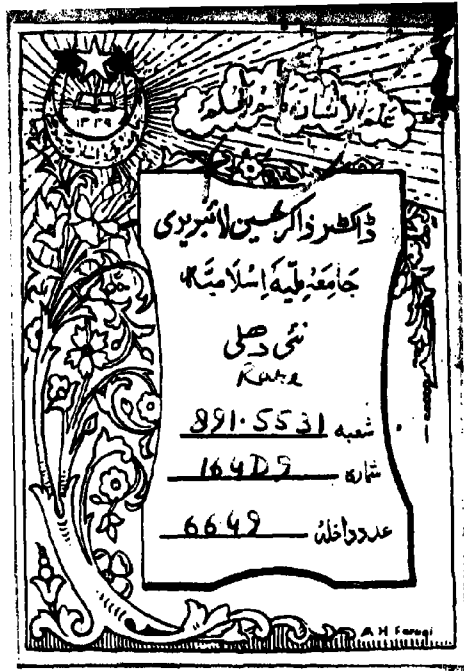 ۱۳۳۹
علم الانسان ما لم يعلم
ڈاکٹر ذاکر حسین لائبریری
جامعہ ملیہ اسلامیہ
نئی دهلی
Rare
شعبہ 891.5531
شمارہ 164D9
عدد داخلہ 6649
A H Faruqi